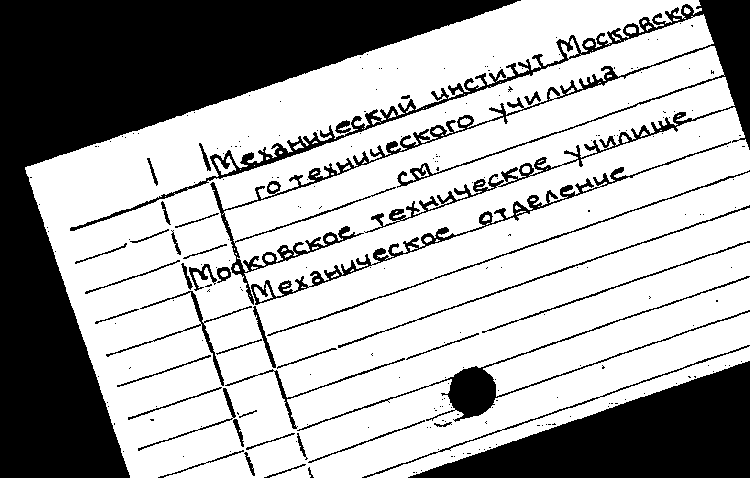 Механический институт Московско-
го технического училища
см.
Московское техническое училище
Механическое отделение.